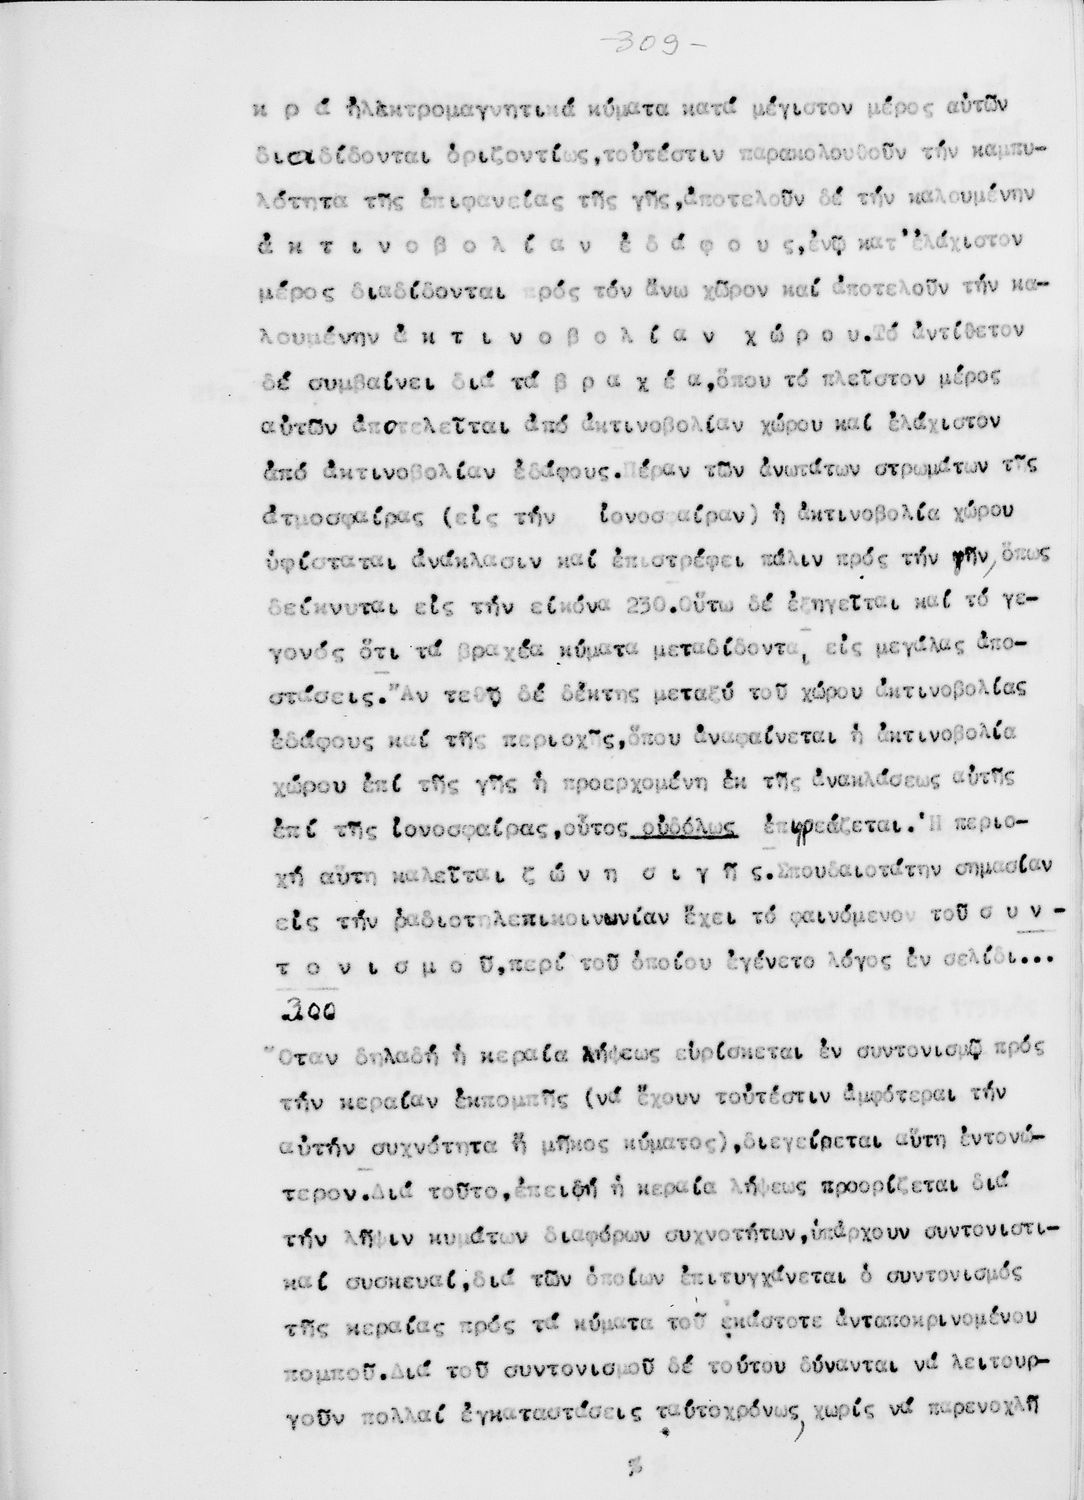 -309-
κ ρ ά ἠλεκτρομαγνητικά κύματα κατά μέγιστον μέρος αὐτῶν
διαδίδονται ὁριζοντίως,τοὐτέστιν παρακολουθοῦν τήν καμπυ-
λότητα τῆς ἐπιφανείας τῆς γῆς,ἀποτελοῦν δέ τήν καλουμένην
ἀ κ τ ι ν ο β ο λ ί α ν ἐ δ ά φ ο υ ς,ἐνῷ κατ'ἐλάχιστον
μέρος διαδίδονται πρός τόν ἄνω χῶρον καί ἀποτελοῦν τήν κα-
λουμένην ἀ κ τ ι ν ο β ο λ ί α ν χ ώ ρ ο υ.Τό ἀντίθετον
δέ συμβαίνει διά τά β ρ α χ έ α,ὅπου τό πλεῖστον μέρος
αὐτῶν ἀποτελεῖται ἀπό ἀκτινοβολίαν χώρου καί ἐλάχιστον
ἀπό ἀκτινοβολίαν ἐδάφους.Πέραν τῶν ἀνωτάτων στρωμάτων τῆς
ἀτμοσφαίρας (εἰς τήν ἰονοσφαίραν) ἡ ἀκτινοβολία χώρου
ὑφίσταται ἀνάκλασιν καί ἐπιστρέφει πάλιν πρός τήν γῆν, ὅπως
δείκνυται εἰς τήν εἰκόνα 230.Οὕτω δέ ἐξηγεῖται καί τό γε-
γονός ὅτι τά βραχέα κύματα μεταδίδονται εἰς μεγάλας ἀπο-
στάσεις.Ἄν τεθῇ δέ δέκτης μεταξύ τοῦ χώρου ἀκτινοβολίας
ἐδάφους καί τῆς περιοχῆς,ὅπου ἀναφαίνεται ἡ ἀκτινοβολία
χώρου ἐπί τῆς γῆς ἡ προερχομένη ἐκ τῆς ἀνακλάσεως αὐτῆς
ἐπί τῆς ἰονοσφαίρας,οὗτος οὐδόλως ἐπηρεάζεται.Ἡ περιο-
χή αὕτη καλεῖται ζ ώ ν η σ ι γ ῆ ς.Σπουδαιοτάτην σημασίαν
εἰς τήν ῥαδιοτηλεπικοινωνίαν ἔχει τό φαινόμενον τοῦ σ υ ν -
τ ο ν ι σ μ ο ῦ,περί τοῦ ὁποίου ἐγένετο λόγος ἐν σελίδι...
300
Ὅταν δηλαδή ἡ κεραία λήψεως εὑρίσκεται ἐν συντονισμῷ πρός
τήν κεραίαν ἐκπομπῆς (νά ἔχουν τοὐτέστιν ἀμφότεραι τήν
αὐτήν συχνότητα ἤ μῆκος κύματος),διεγείρεται αὕτη ἐντονώ-
τερον.Διά τοῦτο,ἐπειδή ἡ κεραία λήψεως προορίζεται διά
τήν λῆψιν κυμάτων διαφόρων συχνοτήτων,ὑπάρχουν συντονιστι-
καί συσκευαί,διά τῶν ὁποίων ἐπιτυγχάνεται ὁ συντονισμός
τῆς κεραίας πρός τά κύματα τοῦ ἑκάστοτε ἀνταποκρινομένου
πομποῦ.Διά τοῦ συντονισμοῦ δέ τούτου δύνανται νά λειτουρ-
γοῦν πολλαί ἐγκαταστάσεις ταὐτοχρόνως, χωρίς νά παρενοχλῇ